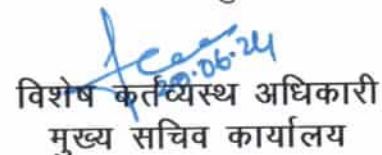 20.06.24
विशेष कर्तव्यस्थ अधिकारी
मुख्य सचिव कार्यालय